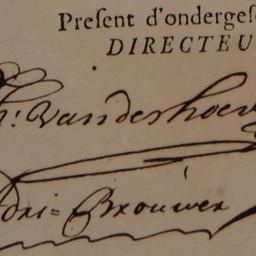 Preſent d'ondergeſc
DIRECTEU
h: Vanderhoev
dri= Brouwer